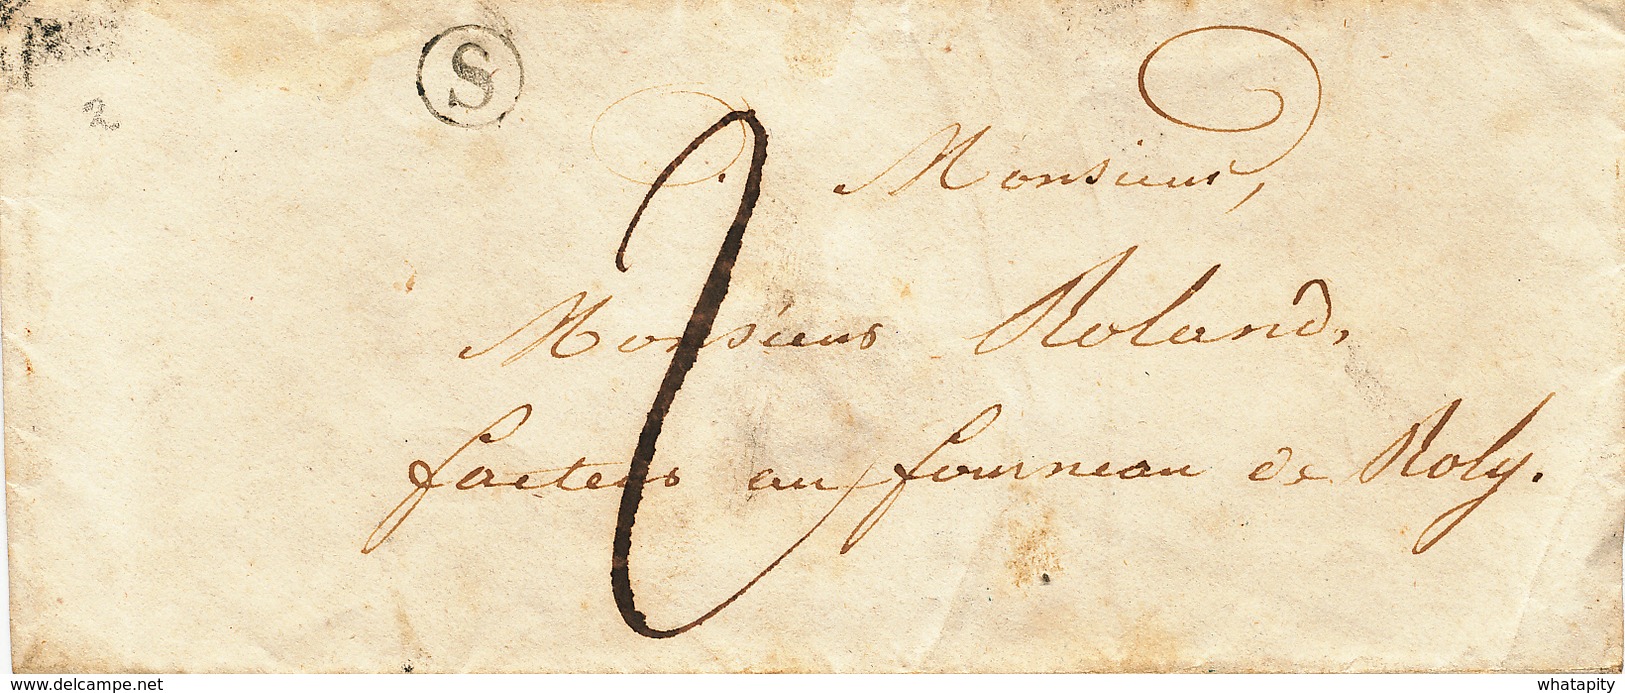 S
2
2
Monsieur,
Monsieur Roland,
facteur au fourneau de Roly.
www.delcampe.net
whatapity